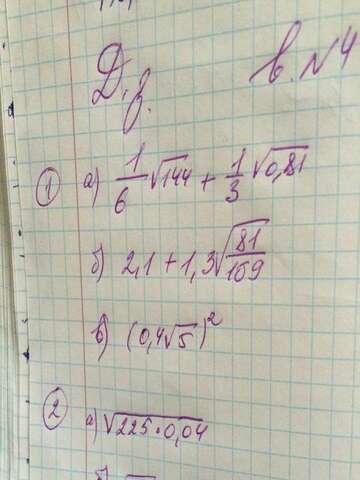 Д.з. в.№4
① а) 1/6 √144 + 1/3 √0,81
б) 2,1 + 1,3 √81/169
в) (0,4√5)²
② а) √225·0,04
б)